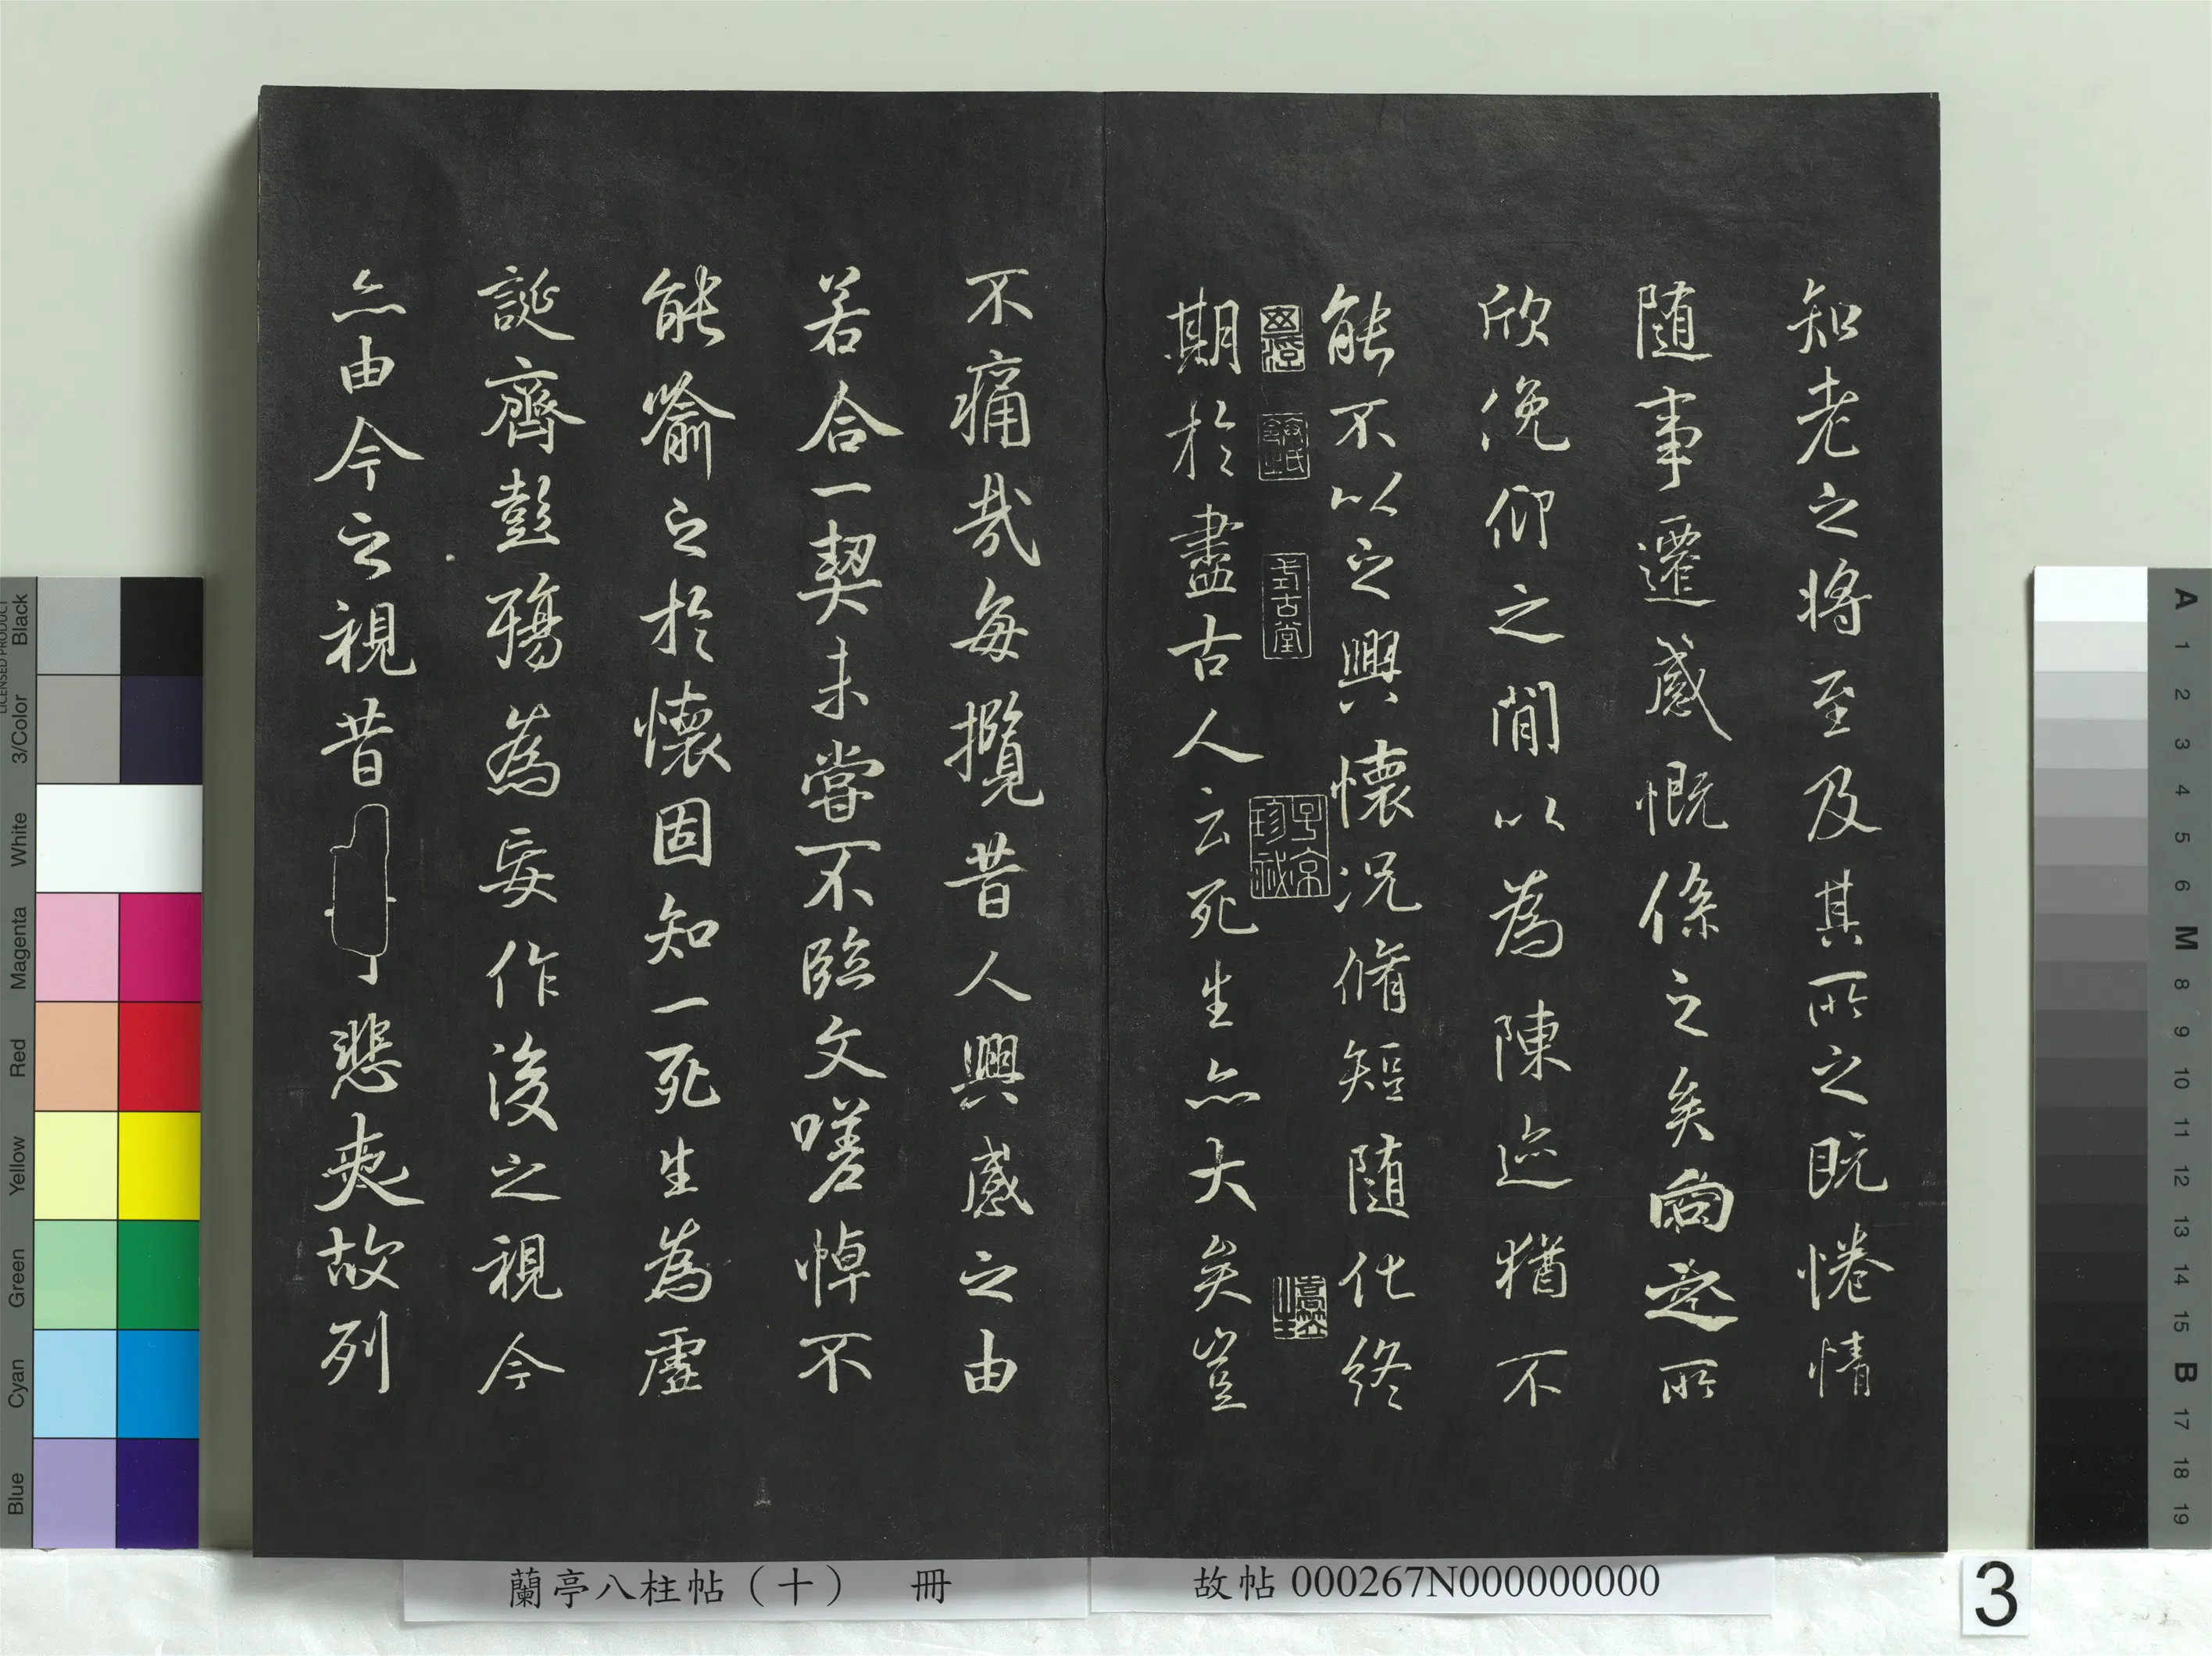 知老之將至及其所之既惓情
隨事遷感慨係之矣向之所
欣俛仰之閒以為陳迹猶不
能不以之興懷況脩短隨化終
期於盡古人云死生亦大矣豈
不痛哉每攬昔人興感之由
若合一契未嘗不臨文嗟悼不
能喻之於懷固知一死生為虛
誕齊彭殤為妄作後之視今
亦由今之視昔悲夫故列
式古堂
子京珍祕
蘭亭八柱帖（十） 冊
故帖 000267N000000000
3
LICENSED PRODUCT
Black
3/Color
White
Magenta
Red
Yellow
Green
Cyan
Blue
A
1
2
3
4
5
6
M
8
9
10
11
12
13
14
15
B
17
18
19